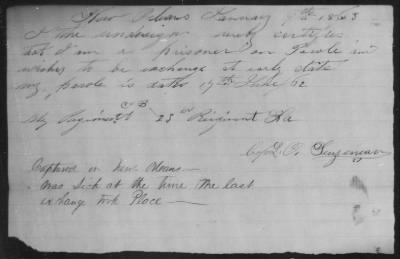 New Orleans January 9th 1863
I the undersign hereby certifies
that I am a prisoner on Parole and
wishes to be exchange at early date
my parole is dated 19th June 62
My Regiment Co B 23rd Regiment La
Captured in New Orleans —
Was Sick at the time the last
exchange took Place —